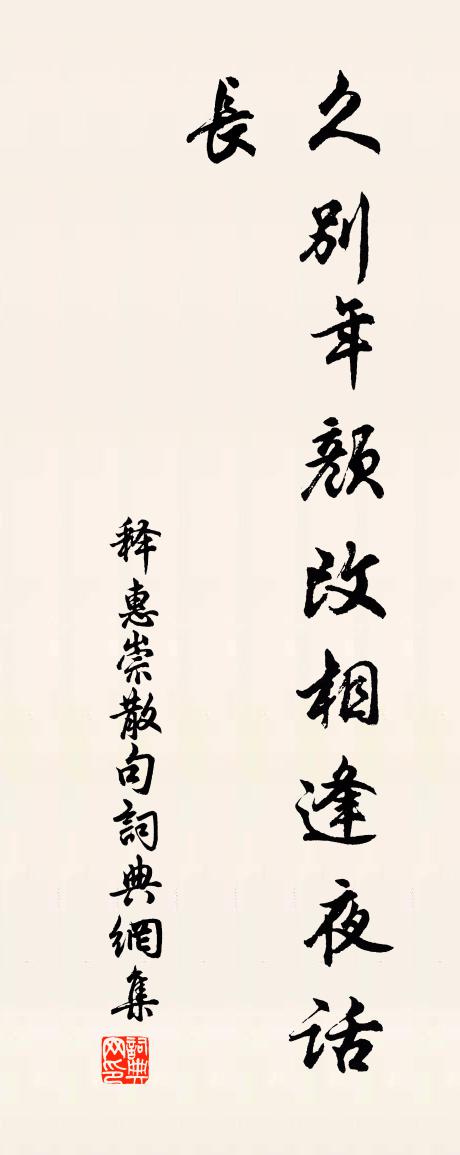 久别年颜改相逢夜话
長
释惠崇散句詞典網集
詞典网印